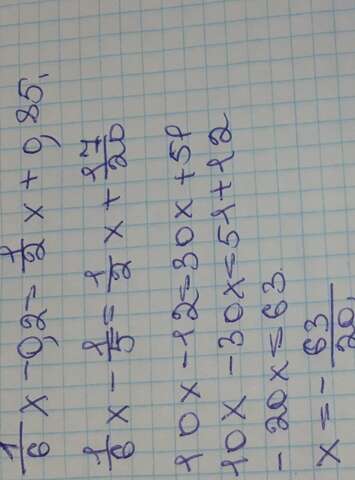 1/6 x - 0,2 = 1/2 x + 0,85.
1/6 x - 1/5 = 1/2 x + 17/20
10x - 12 = 30x + 51
10x - 30x = 51 + 12
- 20x = 63.
x = - 63/20.